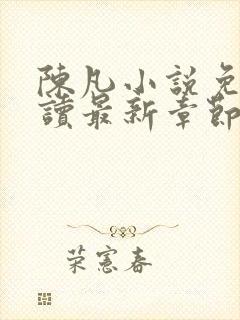 陳凡小說免
讀最新章節
荣憲春